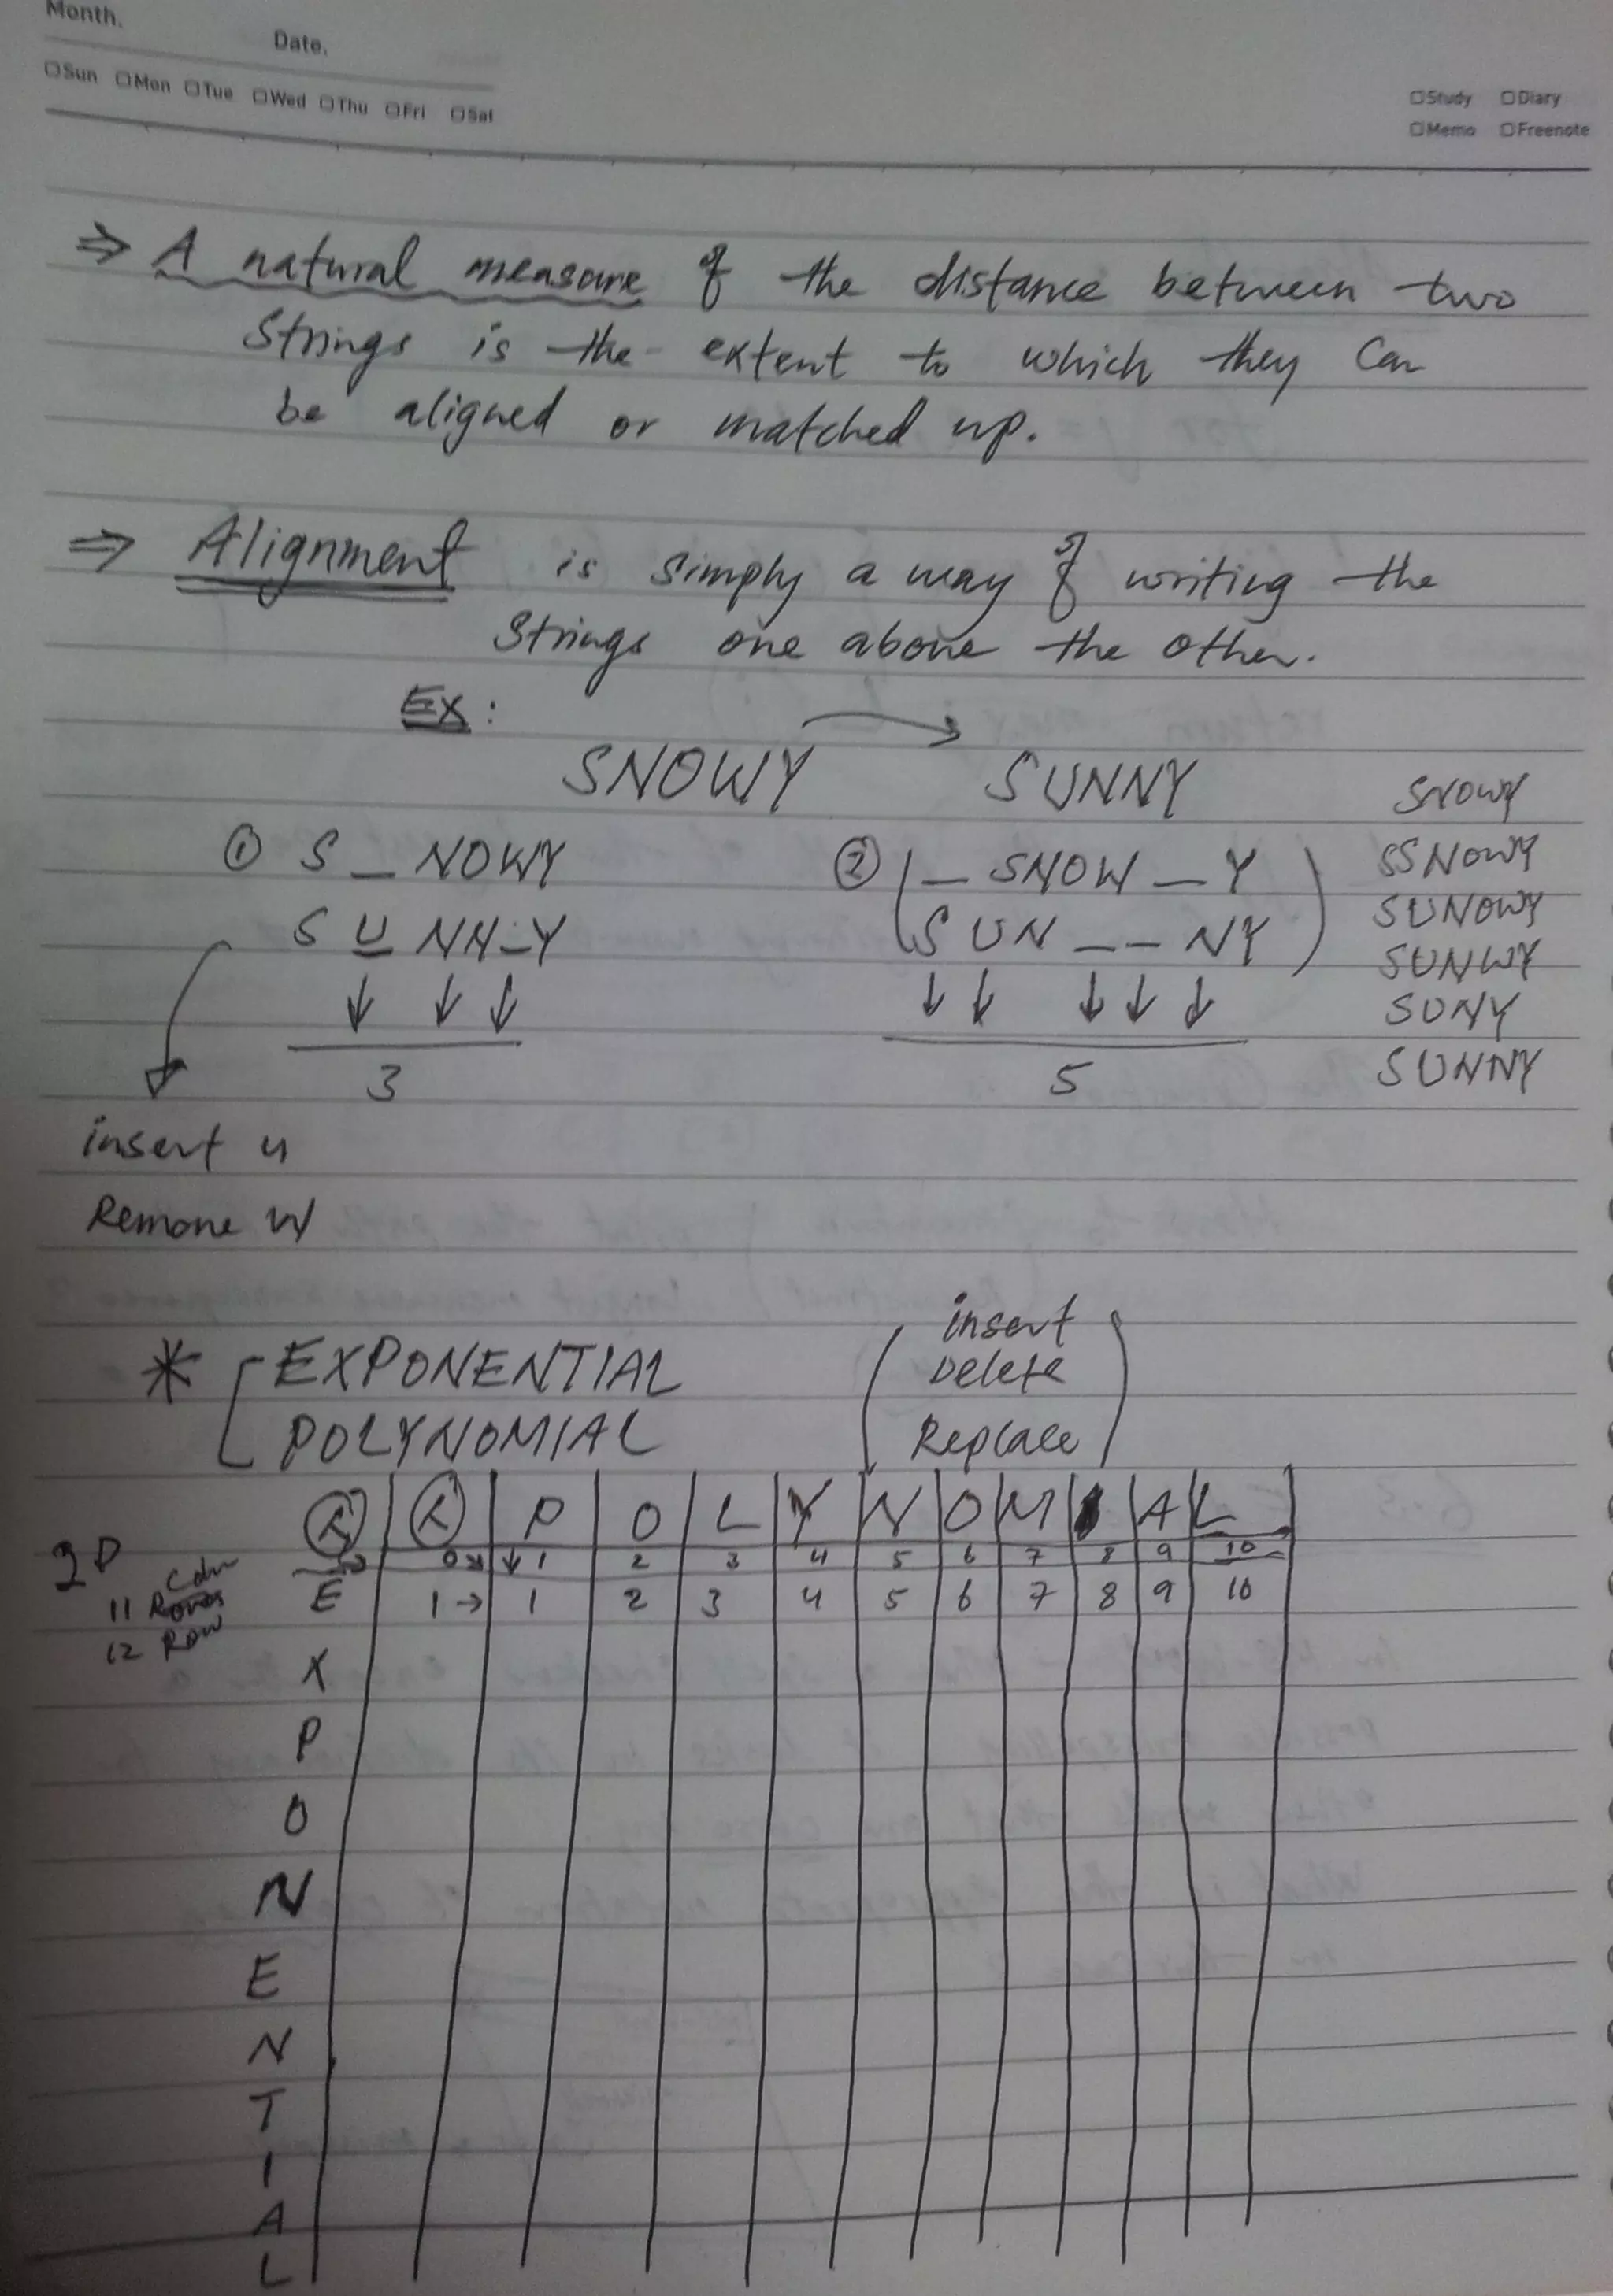 Month.
Date.
Sun Mon Tue Wed Thu Fri Sat
Study Diary
Memo Freenote
⇒ A natural measure of the distance between two
Strings is the extent to which they can
be aligned or matched up.
⇒ Alignment is simply a way of writing the
Strings one above the other.
EX:
SNOWY → SUNNY
① S _ NOWY
S U NN_Y
↓ ↓ ↓
3
② _ SNOW _ Y
SUN _ _ NY
↓ ↓ ↓ ↓ ↓
5
SNOWY
SSNOWY
SUNOWY
SUNWY
SUNY
SUNNY
insert u
Remove W
* EXPONENTIAL
POLYNOMIAL
insert
Delete
Replace
2D
11 Rows
12 Row
P O L Y N O M I A L
0 ↓ 1 2 3 4 5 6 7 8 9 10
E 1 → 1 2 3 4 5 6 7 8 9 10
X
P
O
N
E
N
T
I
A
L